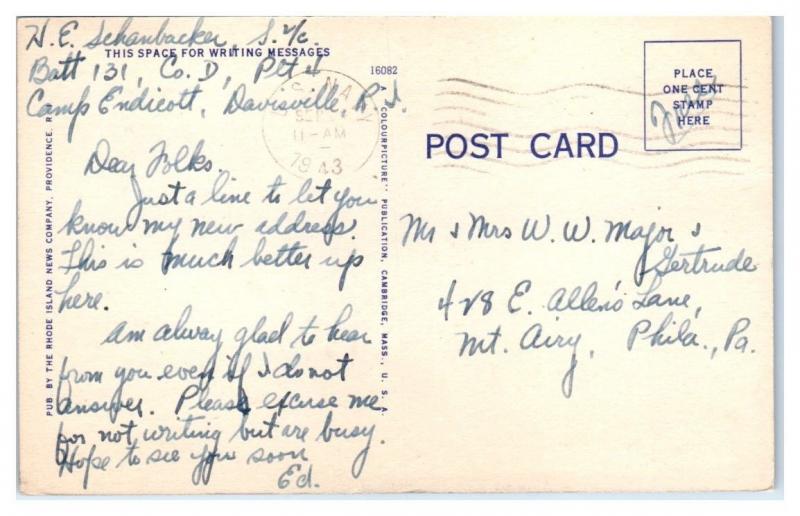 H. E. Schanbacker, S. 2/c.
THIS SPACE FOR WRITING MESSAGES
Batt 131, Co. D, Plt 4
Camp Endicott, Davisville, R. I.
Dear Folks.
Just a line to let you
know my new address.
This is much better up
here.
Am alway glad to hear
from you even if I do not
answer. Please excuse me
for not writing but are busy.
Hope to see you soon
Ed.
PUB BY THE RHODE ISLAND NEWS COMPANY, PROVIDENCE, R
16082
A "COLOURPICTURE" PUBLICATION, CAMBRIDGE, MASS., U. S. A.
U. S. NAVY
SEP
11-AM
1943
POST CARD
PLACE
ONE CENT
STAMP
HERE
Free
Mr & Mrs W. W. Major &
Gertrude
428 E. Allen's Lane,
Mt. Airy, Phila., Pa.